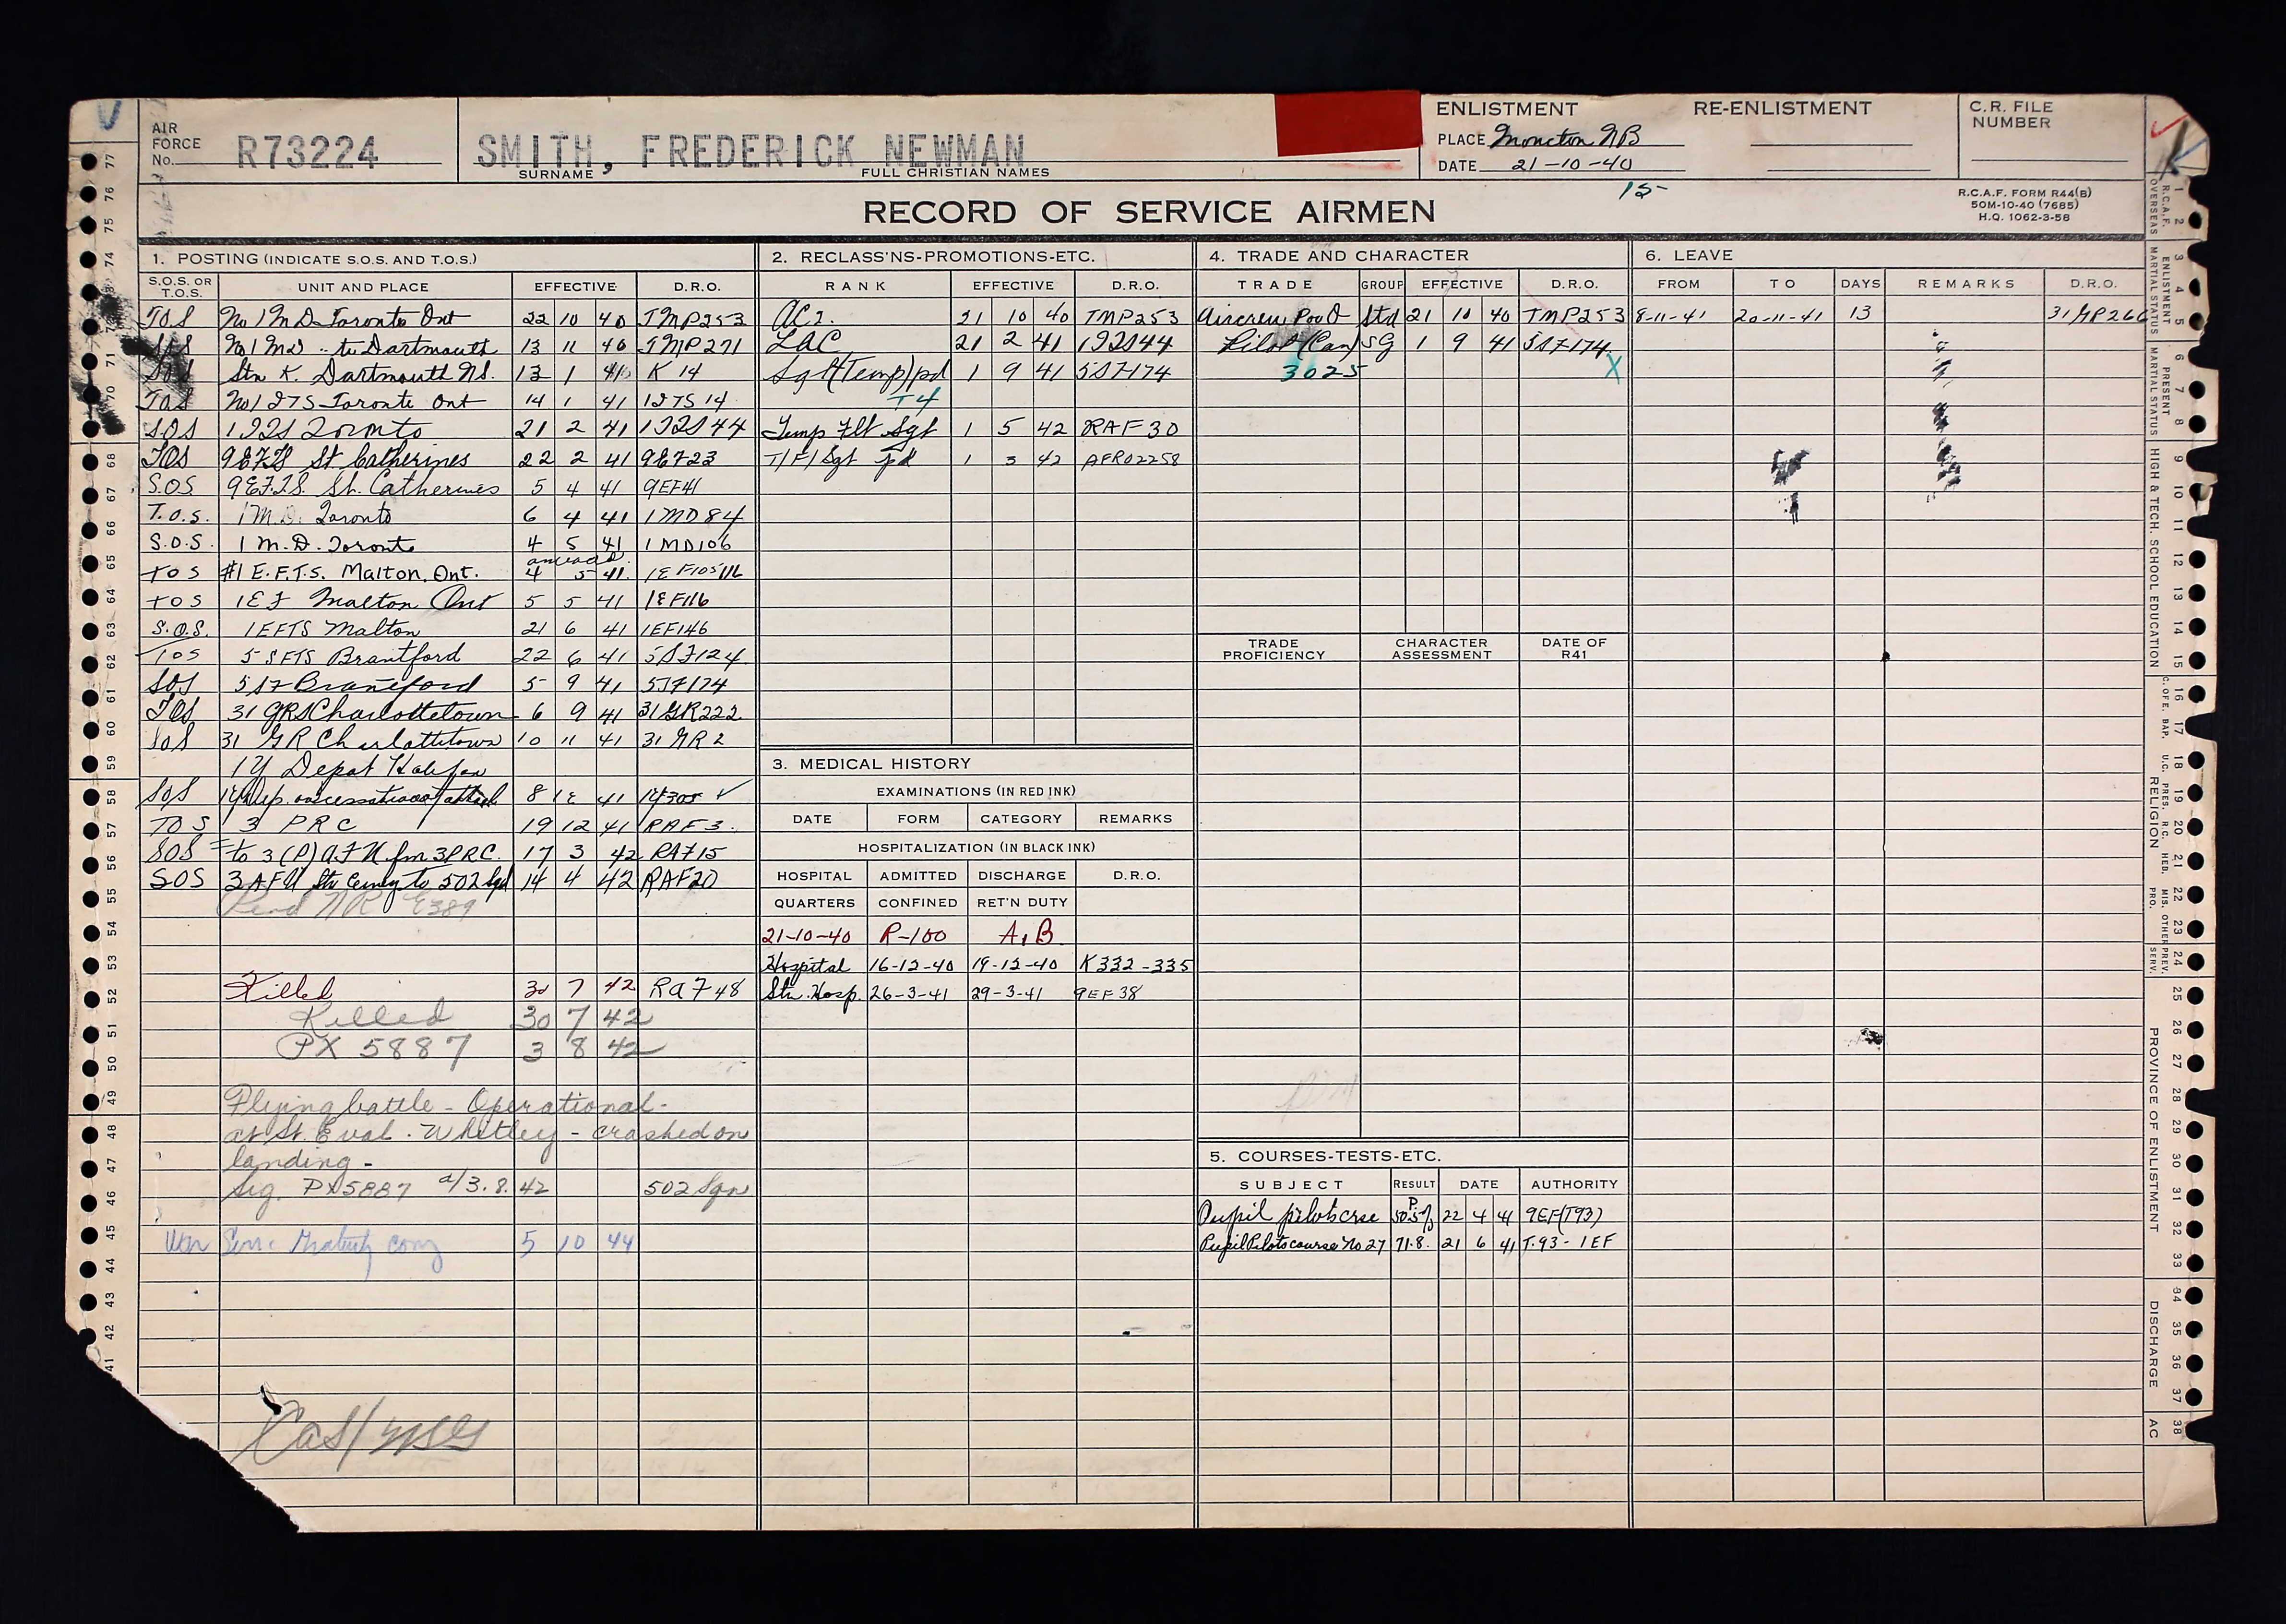 AIR FORCE No. R73224
SMITH, FREDERICK NEWMAN
SURNAME FULL CHRISTIAN NAMES
ENLISTMENT RE-ENLISTMENT
PLACE Moncton NB
DATE 21-10-40
15
C.R. FILE NUMBER
RECORD OF SERVICE AIRMEN
R.C.A.F. FORM R44(B)
50M-10-40 (7685)
H.Q. 1062-3-58
1. POSTING (INDICATE S.O.S. AND T.O.S.)
S.O.S. OR T.O.S. UNIT AND PLACE EFFECTIVE D.R.O.
TOS No 1 MD Toronto Ont 22 10 40 TMP253
SOS No 1 MD to Dartmouth 13 11 40 TMP271
SOS Stn K. Dartmouth NS. 13 1 41 K 14
TOS No 1 ITS Toronto Ont 14 1 41 1ITS 14
SOS 1 ITS Toronto 21 2 41 1ITS44
TOS 9EFTS St Catherines 22 2 41 9EF23
S.O.S. 9EFTS. St. Catherines 5 4 41 9EF41
T.O.S. 1 M.D. Toronto 6 4 41 1MD84
S.O.S. 1 M.D. Toronto 4 5 41 1MD106
TOS #1 E.F.T.S. Malton, Ont. 4 5 41 1EF105/116
TOS 1EF Malton Ont 5 5 41 1EF116
S.O.S. 1EFTS Malton 21 6 41 1EF146
TOS 5 SFTS Brantford 22 6 41 5SF124
SOS 5 SF Brantford 5 9 41 5SF174
TOS 31 GRS Charlottetown 6 9 41 31GR222
SOS 31 GR Charlottetown 10 11 41 31 GR 2
1Y Depot Halifax
SOS 1Y Dep. on cessation of attach 8 12 41 1Y305 ✓
TOS 3 PRC 19 12 41 RAF3.
SOS to 3 (P) AFU fm 3PRC. 17 3 42 RAF15
SOS 3 AFU to 502 Sqd 14 4 42 RAF20
E389
Killed 30 7 42 RAF48
Killed 30 7 42
PX 5887 3 8 42
Flying battle - Operational -
at St. Eval. Whitley - crashed on
landing -
Sig. PX5887 d/3.8.42 502 Sqn
War Serv. Gratuity 5 10 44
2. RECLASS'NS-PROMOTIONS-ETC.
RANK EFFECTIVE D.R.O.
AC2. 21 10 40 TMP253
LAC 21 2 41 1ITS44
Sgt (Temp) pd 1 9 41 5SF174
T4
Temp Flt Sgt 1 5 42 RAF30
T/F/Sgt pd 1 3 42 AFRO2258
3. MEDICAL HISTORY
EXAMINATIONS (IN RED INK)
DATE FORM CATEGORY REMARKS
HOSPITALIZATION (IN BLACK INK)
HOSPITAL ADMITTED DISCHARGE D.R.O.
QUARTERS CONFINED RET'N DUTY
21-10-40 R-100 A,B
Hospital 16-12-40 19-12-40 K332-335
Stn. Hosp. 26-3-41 29-3-41 9EF38
4. TRADE AND CHARACTER
TRADE GROUP EFFECTIVE D.R.O.
Aircrew P or O Std 21 10 40 TMP253
Pilot (Can) SG 1 9 41 5SF174
3025 X
TRADE PROFICIENCY CHARACTER ASSESSMENT DATE OF R41
5. COURSES-TESTS-ETC.
SUBJECT RESULT DATE AUTHORITY
Pupil pilots crse P 50.5% 22 4 41 9EF(T93)
Pupil Pilots course No 27 71.8. 21 6 41 T.93-1EF
6. LEAVE
FROM TO DAYS REMARKS D.R.O.
8-11-41 20-11-41 13
77 76 75 74 71 70 68 67 66 65 64 63 62 61 60 59 58 57 56 55 54 53 52 51 50 49 48 47 46 45 44 43 42 41
1 2 3 4 5 6 7 8 9 10 11 12 13 14 15 16 17 18 19 20 21 22 23 24 25 26 27 28 29 30 31 32 33 34 35 36 37 38
R.C.A.F. OVERSEAS
ENLISTMENT MARTIAL STATUS
PRESENT MARTIAL STATUS
HIGH & TECH. SCHOOL EDUCATION
C. OF E. BAP. U.C. PRES. R.C. HEB. MIS. PRO. OTHER
RELIGION
PREV. SERV.
PROVINCE OF ENLISTMENT
DISCHARGE
AC